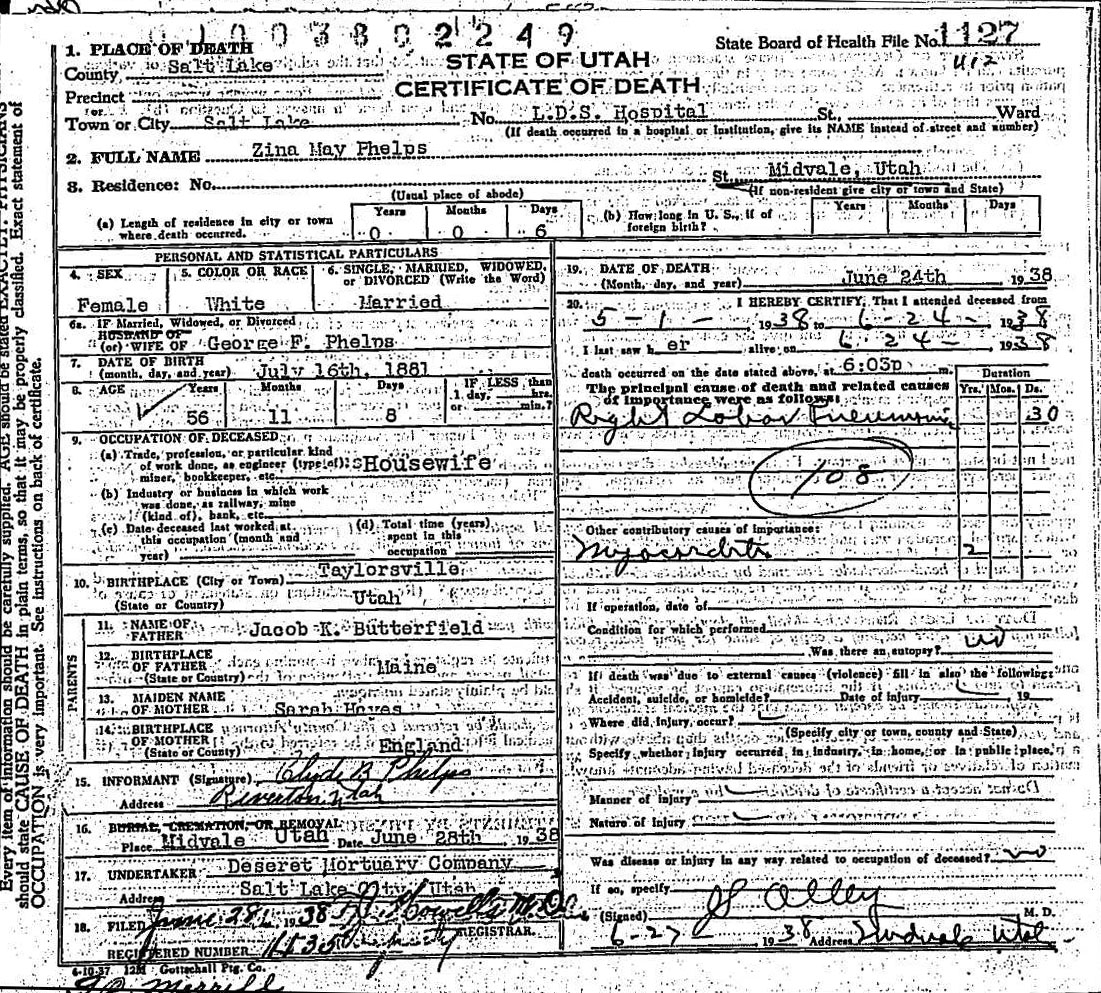 0 1 0 0 3 8 0 2 2 4 9
State Board of Health File No. 1127
1. PLACE OF DEATH
County Salt Lake
STATE OF UTAH
CERTIFICATE OF DEATH
Precinct
or
Town or City Salt Lake No. L.D.S. Hospital St., Ward
(If death occurred in a hospital or institution, give its NAME instead of street and number)
2. FULL NAME Zina May Phelps
3. Residence: No. St. Midvale, Utah
(Usual place of abode) (If non-resident give city or town and State)
(a) Length of residence in city or town where death occurred. Years 0 Months 0 Days 6
(b) How long in U. S., if of foreign birth? Years Months Days
PERSONAL AND STATISTICAL PARTICULARS
4. SEX Female
5. COLOR OR RACE White
6. SINGLE, MARRIED, WIDOWED, or DIVORCED (Write the Word) Married
6a. IF Married, Widowed, or Divorced
HUSBAND OF
(or) WIFE OF George F. Phelps
7. DATE OF BIRTH
(month, day, and year) July 16th, 1881
8. AGE Years 56 Months 11 Days 8 IF LESS than 1 day, hrs. or min.?
9. OCCUPATION OF DECEASED
(a) Trade, profession, or particular kind
of work done, as engineer (type of): Housewife
miner, bookkeeper, etc.
(b) Industry or business in which work
was done, as railway, mine
(kind of), bank, etc.
(c) Date deceased last worked at
this occupation (month and
year)
(d) Total time (years)
spent in this
occupation
10. BIRTHPLACE (City or Town) Taylorsville
(State or Country) Utah
PARENTS
11. NAME OF FATHER Jacob K. Butterfield
12. BIRTHPLACE OF FATHER
(State or Country) Maine
13. MAIDEN NAME OF MOTHER Sarah Hayes
14. BIRTHPLACE OF MOTHER
(State or Country) England
15. INFORMANT (Signature) Clyde B Phelps
Address Riverton, Utah
16. BURIAL, CREMATION, OR REMOVAL
Place Midvale Utah Date June 28th 1938
17. UNDERTAKER Deseret Mortuary Company
Address Salt Lake City, Utah
18. FILED June 28 1938 M.D.
REGISTRAR.
REGISTERED NUMBER
6-10-37 12M Gottschall Ptg. Co.
Merrill
19. DATE OF DEATH
(Month, day, and year) June 24th 1938
20. I HEREBY CERTIFY, That I attended deceased from
5-1- 1938 to 6-24- 1938
I last saw her alive on 6-24- 1938
death occurred on the date stated above, at 6:03p m.
The principal cause of death and related causes
of importance were as follows:
Duration
Yrs. Mos. Ds.
Right Lobar Pneumonia 30
108
Other contributory causes of importance:
Myocarditis 2
If operation, date of
Condition for which performed
Was there an autopsy? no
If death was due to external causes (violence) fill in also the following:
Accident, suicide, or homicide? Date of injury 19
Where did injury occur?
(Specify city or town, county and State)
Specify whether injury occurred in industry, in home, or in public place,
Manner of injury
Nature of Injury
Was disease or injury in any way related to occupation of deceased? no
If so, specify
(Signed) Alley M. D.
6-27 1938 Address Midvale Utah
Every item of information should be carefully supplied. AGE should be stated EXACTLY. PHYSICIANS
should state CAUSE OF DEATH in plain terms, so that it may be properly classified. Exact statement of
OCCUPATION is very important. See instructions on back of certificate.